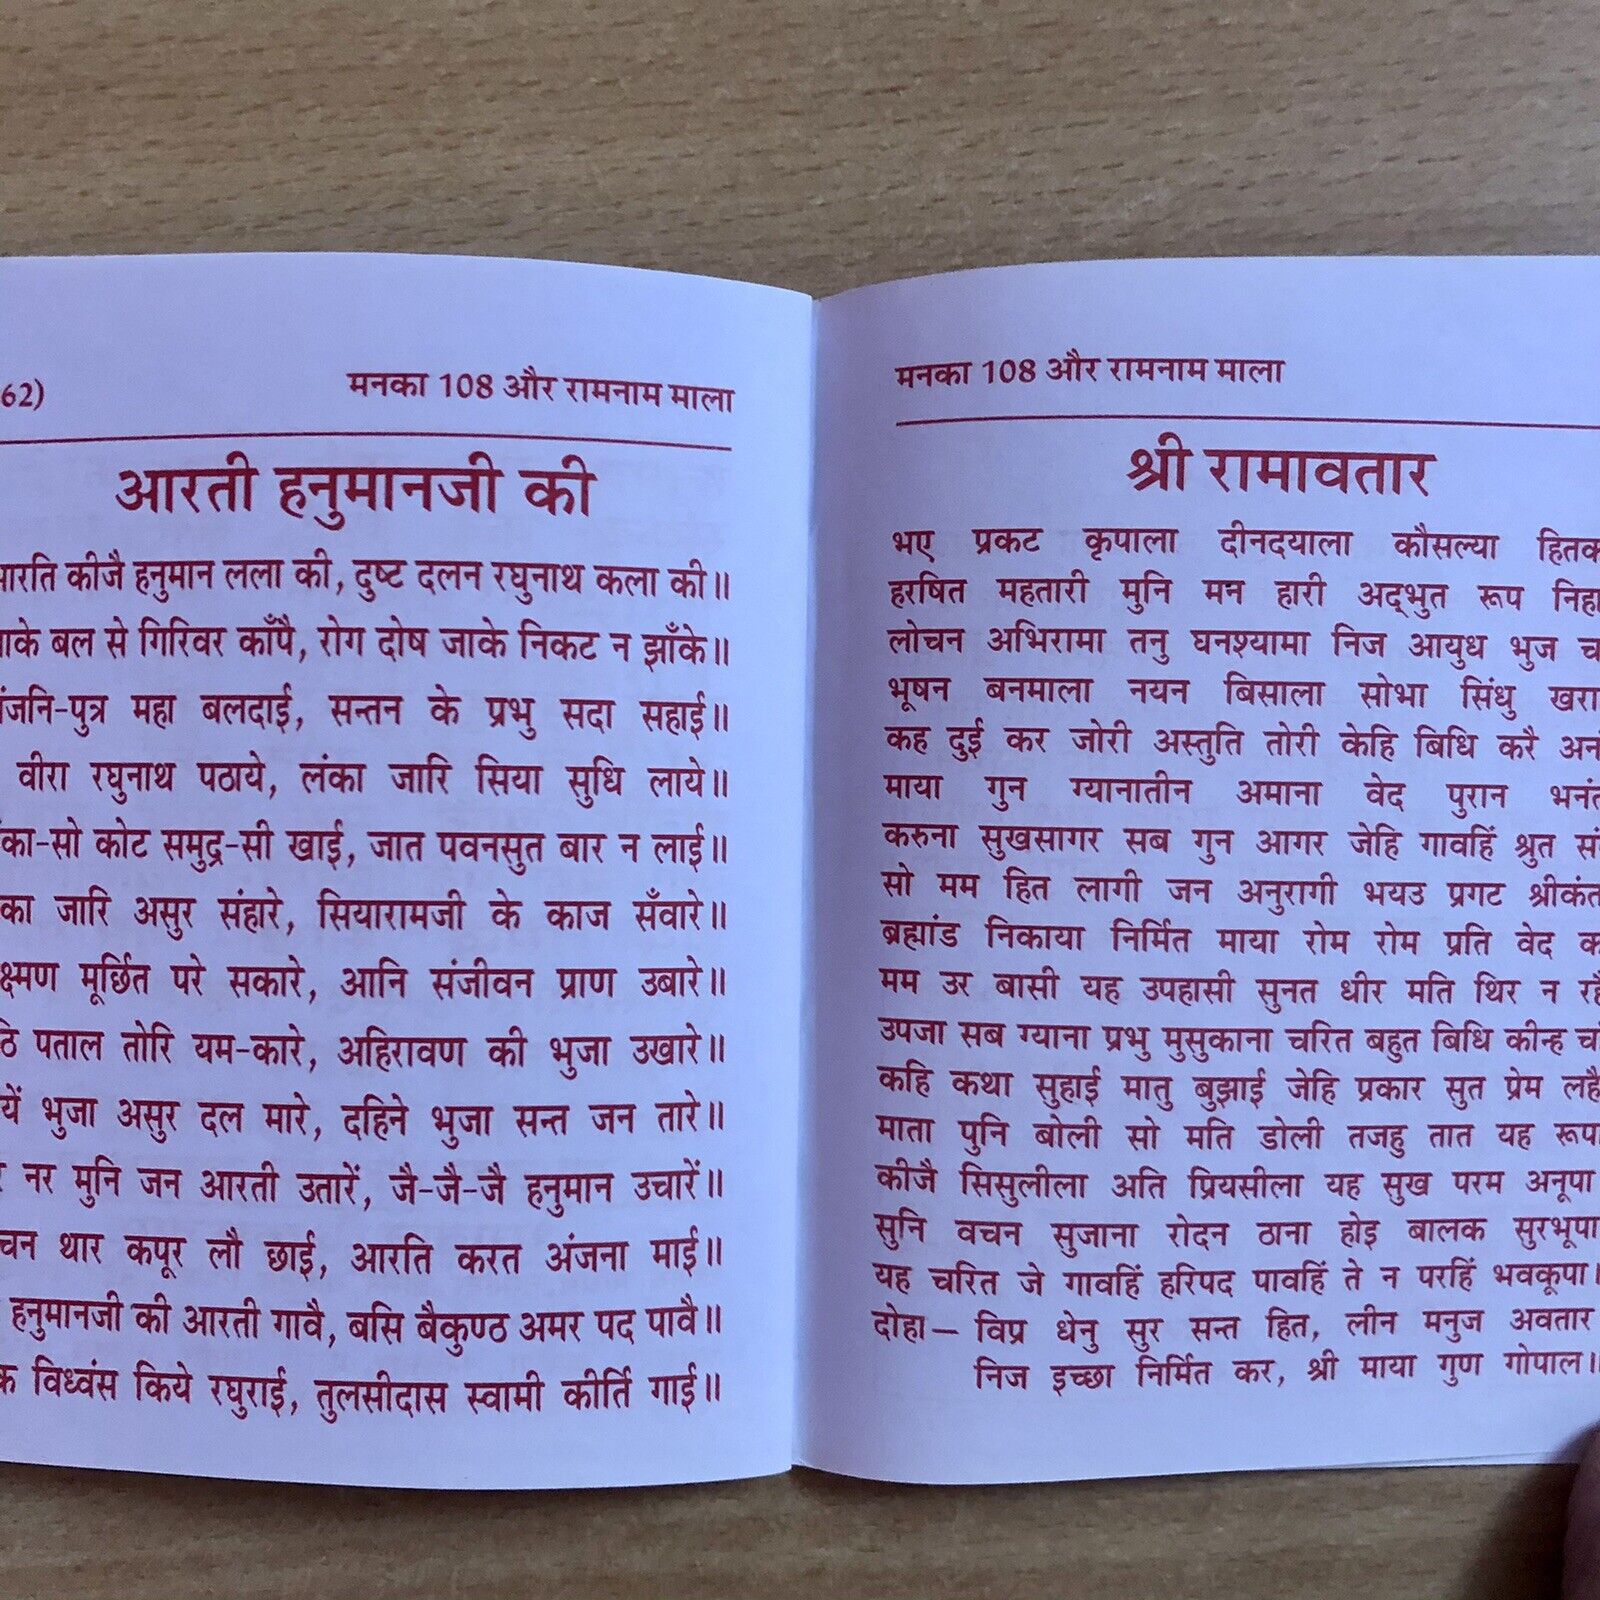 62)
मनका 108 और रामनाम माला
आरती हनुमानजी की
कीजै हनुमान लला की, दुष्ट दलन रघुनाथ कला की॥
बल से गिरिवर काँपै, रोग दोष जाके निकट न झाँके॥
महा बलदाई, सन्तन के प्रभु सदा सहाई॥
वीरा रघुनाथ पठाये, लंका जारि सिया सुधि लाये॥
कोट समुद्र-सी खाई, जात पवनसुत बार न लाई॥
जारि असुर संहारे, सियारामजी के काज सँवारे॥
मूर्छित परे सकारे, आनि संजीवन प्राण उबारे॥
पताल तोरि यम-कारे, अहिरावण की भुजा उखारे॥
भुजा असुर दल मारे, दहिने भुजा सन्त जन तारे॥
नर मुनि जन आरती उतारें, जै-जै-जै हनुमान उचारें॥
थार कपूर लौ छाई, आरति करत अंजना माई॥
हनुमानजी की आरती गावै, बसि बैकुण्ठ अमर पद पावै॥
विध्वंस किये रघुराई, तुलसीदास स्वामी कीर्ति गाई॥
मनका 108 और रामनाम माला
श्री रामावतार
भए प्रकट कृपाला दीनदयाला कौसल्या
हरषित महतारी मुनि मन हारी अद्भुत रूप
लोचन अभिरामा तनु घनश्यामा निज आयुध भुज
भूषन बनमाला नयन बिसाला सोभा सिंधु
कह दुई कर जोरी अस्तुति तोरी केहि बिधि करै
माया गुन ग्यानातीन अमाना वेद पुरान
करुना सुखसागर सब गुन आगर जेहि गावहिं श्रुत
सो मम हित लागी जन अनुरागी भयउ प्रगट
ब्रह्मांड निकाया निर्मित माया रोम रोम प्रति वेद
मम उर बासी यह उपहासी सुनत धीर मति थिर न
उपजा सब ग्याना प्रभु मुसुकाना चरित बहुत बिधि कीन्ह
कहि कथा सुहाई मातु बुझाई जेहि प्रकार सुत प्रेम
माता पुनि बोली सो मति डोली तजहु तात यह रूपा
कीजै सिसुलीला अति प्रियसीला यह सुख परम अनूपा
सुनि वचन सुजाना रोदन ठाना होइ बालक सुरभूपा
यह चरित जे गावहिं हरिपद पावहिं ते न परहिं भवकूपा।
दोहा— विप्र धेनु सुर सन्त हित, लीन मनुज अवतार
निज इच्छा निर्मित कर, श्री माया गुण गोपाल॥